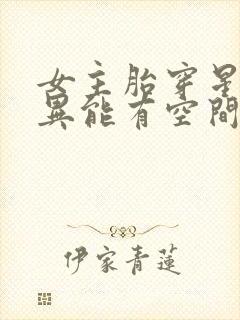 女主胎穿星
異能有空間
伊家青蓮